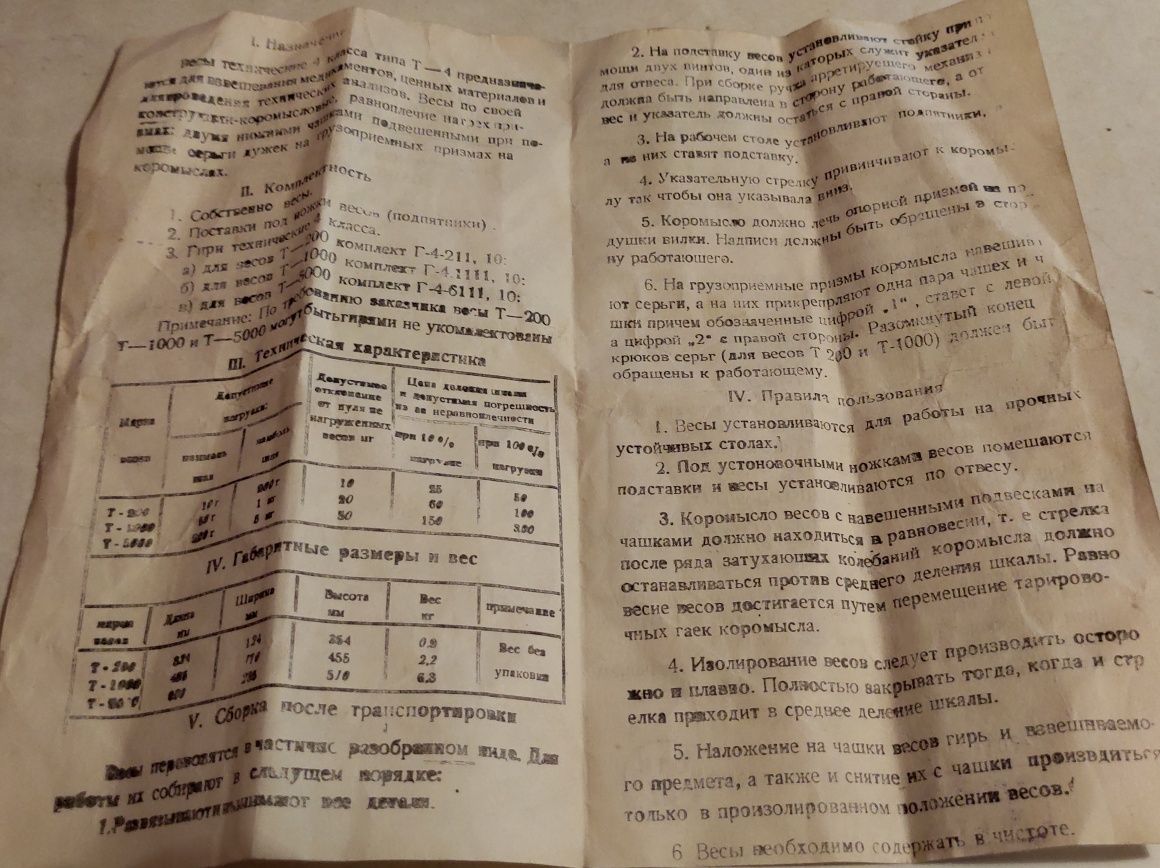 I. Назначение
Весы технические 4 класса типа Т—4 предназначе-
для взвешивания медикаментов, ценных материалов и
технических анализов. Весы по своей
равноплечие
двумя нижними чашками подвешенными при по-
серьги дужек на грузоприемных призмах на
коромыслах.
II. Комплектность
1. Собственно весы.
2. Поставки под ножки весов (подпятники).
3. Гири технические 4 класса.
а) для весов Т—200 комплект Г-4-211, 10:
б) для весов Т—1000 комплект Г-4.1111, 10:
в) для весов Т—5000 комплект Г-4-6111, 10:
Примечание: По требованию заказчика весы Т—200
Т—1000 и Т—5000 могут быть гирями не укомплектованы
III. Техническая характеристика
Марка весов
Допустимые нагрузки:
Допустимое отклонение от нуля не нагруженных весов мг
Цена деления шкалы и допустимая погрешность из за неравноплечности
при 10%
при 100% нагрузки
Т - 200 10 г 200 г 10 25 50
Т - 1000 50 г 1 кг 20 60 100
Т - 5000 5 кг 50 150 300
IV. Габаритные размеры и вес
марка весов
Длина мм
Ширина мм
Высота мм
Вес кг
примечание
Т - 200 0,9 Вес без
Т - 1000 455 2,2 упаковки
570 6,3
V. Сборка после транспортировки
Весы перевозятся в частично разобранном виде. Для
работы их собирают в следущем порядке:
1. все детали.
2. На подставку весов устанвливают стойку при п
мощи двух винтов, один из которых служит указател
для отвеса. При сборке ручка арретируещего механиз
должна быть направлена в сторону работающего, а от
вес и указатель должны остаться с правой стораны.
3. На рабочем столе устоновливают подпятники,
а на них ставят подставку.
4. Указательную стрелку привинчивают к коромы-
лу так чтобы она указывала вниз.
5. Коромысло должно лечь опорной призмой на по
душки вилки. Надписи должны быть обращены в стор
ну работающего.
6. На грузоприемные призмы коромысла навешив
ют серьги, а на них прикрепляют одна пара чашех и ч
шки причем обозначенные цифрой „1“, ставет с левой
а цифрой „2“ с правой стороны. Разомкнутый конец
крюков серьг (для весов Т 200 и Т-1000) должен быт
обращены к работающему.
IV. Правила пользования
1. Весы установливаются для работы на прочных
устойчивых столах.
2. Под устоновочными ножками весов помешаются
подставки и весы установливаются по отвесу.
3. Коромысло весов с навешенными подвесками на
чашками должно находиться в равновесии, т. е стрелка
после ряда затухающих колебаний коромысла должно
останавливаться против среднего деления шкалы. Равно
весие весов достигается путем перемещение тарирово-
чных гаек коромысла.
4. Изолирование весов следует производить осторо
жно и плавно. Полностью закрывать тогда, когда и стр
елка приходит в среднее деление шкалы.
5. Наложение на чашки весов гирь и взвешиваемо-
го предмета, а также и снятие их с чашки произвдиться
только в произолированном положении весов.
6 Весы необходимо содержать в чистоте.